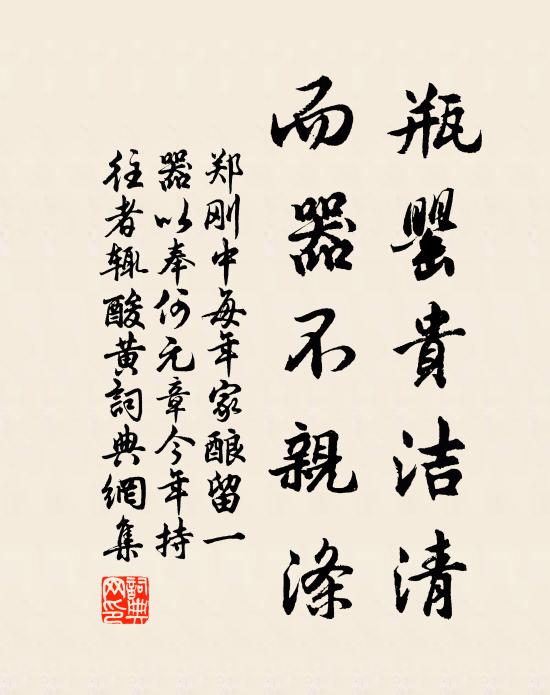 瓶罂貴洁清
而器不親滌
郑刚中每年家酿留一
器以奉何元章今年持
往者辄酸黄詞典網集
詞典网印